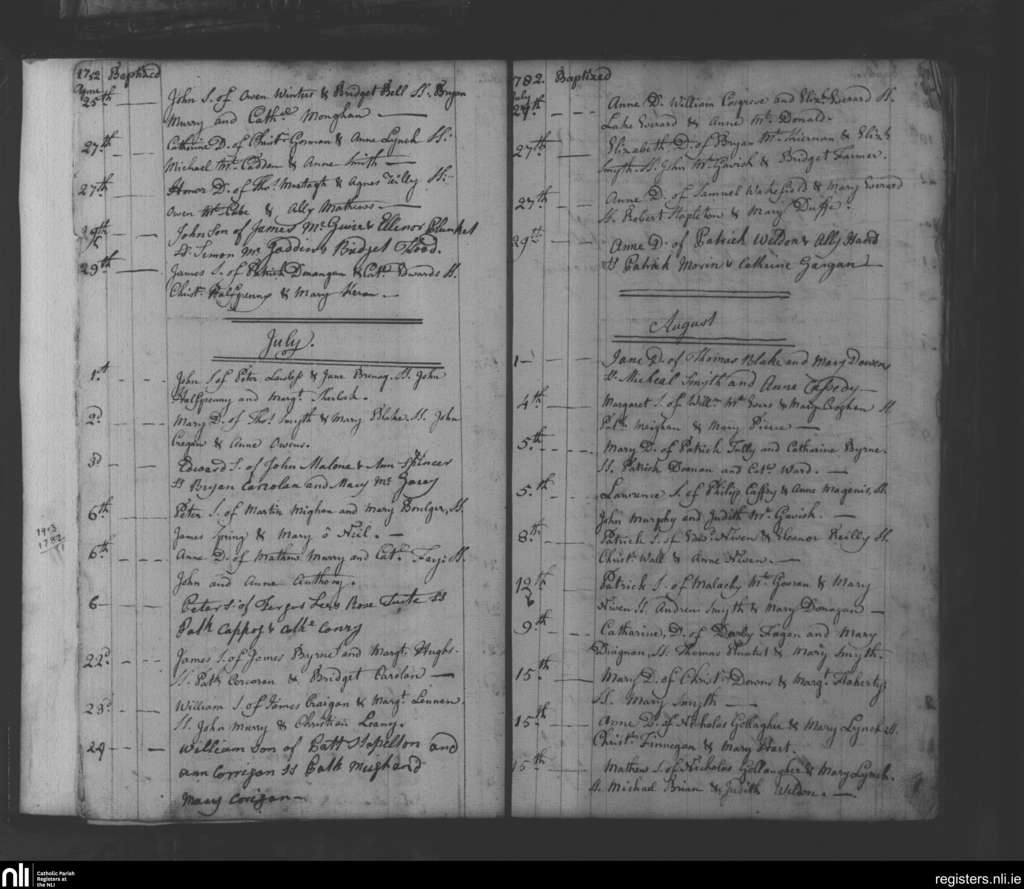 1782 Baptized
June
25th John S. of Owen Winters & Bridget Bell Ss. Bryan
Murry and Cathne Monghan
27th Catherine D. of Christr Gorman & Anne Lynch Ss.
Michael Mc Caden & Anne Smith
27th Honor D. of Thos Murtagh & Agnes Tilly Ss.
Owen Mc Cabe & Ally Mathews
29th John Son of James Mc Guire & Ellenor Plunket
Ss. Simon Mc Gadden & Bridget Flood.
29th James S. of Patrick Donangan & Cate Edwards Ss.
Christr Halfpenny & Mary Keran.
July.
1st John S. of Peter & Jane Ss. John
Halfpenny and Margt Sherlock.
2d Mary D. of Thos Smyth & Mary Blake Ss. John
Cregan & Anne Owens.
3d Edward S. of John Malone & Ann Spincer
Ss Bryan Carolan and Mary Mc Garey
6th Peter S. of Martin Mighan and Mary Boulger, Ss.
James Spring & Mary ô Neil.
1903
1782
6th Anne D. of Mathew Murry and Cathe Fay: Ss.
John and Anne Anthony.
6 Peter S: of Fergus Lee & Rose Tuite Ss
Patk Cappoy & Cathe Conry
22d James S. of James Byrne and Margt Hughs.
Ss. Patk Corcoran & Bridget Carolan
23d William S. of James Craigan & Margt Lennon.
Ss. John Murry & Christian Leany.
29 William Son of Patt Stapelton and
ann Corrigan Ss Patk Meighand
Mary Corigan
1782. Baptized
July
24th Anne D. William Cosgrove and Elizh Everard Ss.
Luke Everard & Anne Mc Donald.
27th Elizabeth D. of Bryan Mc Kiernan & Elizh
Smyth. Ss. John Mc Gavish & Bridget Farmer.
27th Anne D. of Samuel Wakefield & Mary Everard
Ss. Robert Stapleton & Mary Duffe.
29th Anne D. of Patrick Weldon & Ally Hand
Ss Patrick Morin & Catherine Gargan
August
1 Jane D. of Thomas Blake and Mary Dowens
Ss. Micheal Smyth and Anne Cassedy
4th Margaret S. of Willm Mc Evers & Mary Coghan Ss
Patk Meighan & Mary Pierce
5th Mary D. of Patrick Tully and Catharine Byrne.
Ss. Patrick Donnan and Cate Ward.
5th Lawrence S. of Philip Caffry & Anne Magenis, Ss.
John Murphy and Judith Mc Gavish.
8th Patrick S. of Edwd Niven & Eleanor Reilly Ss.
Christr Wall & Anne Niven.
12th Patrick S. of Malachy Mc Gouran & Mary
Niven Ss. Andrew Smyth & Mary Donagan
9th Catharine, D. of Darby Fagan and Mary
Duignan, Ss. Thomas Plunket & Mary Smyth.
15th Mary D. of Christr Downs & Margt Flaherty
Ss. Mary Smyth
15th Anne D. of Nicholas Gollagher & Mary Lynch Ss.
Christr Finnegan & Mary Hart.
15th Mathew S. of Nicholas Gollaugher & Mary Lynch.
Ss. Michael Brian & Judith Weldon.
nli
Catholic Parish
Registers at
the NLI
registers.nli.ie